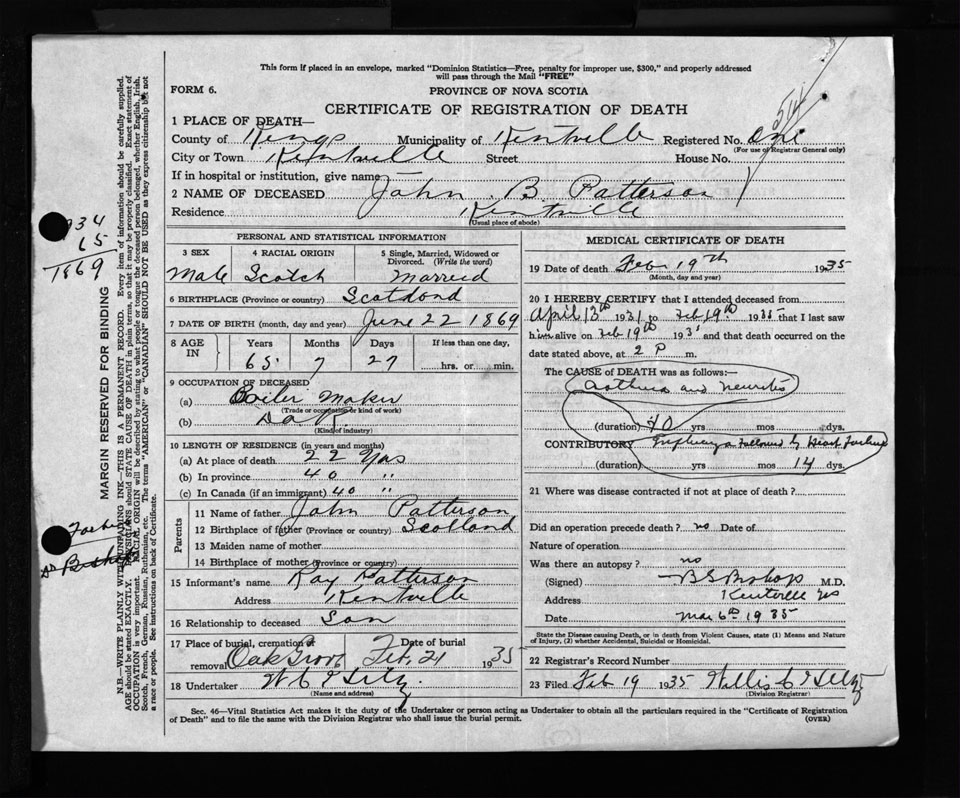 This form if placed in an envelope, marked "Dominion Statistics—Free, penalty for improper use, $300," and properly addressed
will pass through the Mail "FREE"
FORM 6.
PROVINCE OF NOVA SCOTIA
CERTIFICATE OF REGISTRATION OF DEATH
514
1 PLACE OF DEATH—
County of Kings Municipality of Kentville Registered No. one
(For use of Registrar General only)
City or Town Kentville Street House No.
If in hospital or institution, give name
2 NAME OF DECEASED John B. Patterson
Residence Kentville
(Usual place of abode)
PERSONAL AND STATISTICAL INFORMATION
3 SEX 4 RACIAL ORIGIN 5 Single, Married, Widowed or Divorced. (Write the word)
Male Scotch Married
6 BIRTHPLACE (Province or country) Scotland
7 DATE OF BIRTH (month, day and year) June 22 1869
8 AGE IN Years Months Days If less than one day,
65 7 27 hrs. or min.
9 OCCUPATION OF DECEASED
(a) Boiler Maker
(Trade or occupation or kind of work)
(b) D A R
(Kind of industry)
10 LENGTH OF RESIDENCE (in years and months)
(a) At place of death 22 Yrs
(b) In province 40 "
(c) In Canada (if an immigrant) 40 "
Parents
11 Name of father John Patterson
12 Birthplace of father (Province or country) Scotland
13 Maiden name of mother
14 Birthplace of mother (Province or country)
15 Informant's name Ray Patterson
Address Kentville
16 Relationship to deceased Son
17 Place of burial, cremation or removal Oak Grove Date of burial Feb. 21 1935
18 Undertaker W C T Seltz
(Name and address)
MEDICAL CERTIFICATE OF DEATH
19 Date of death Feb 19th 1935
(Month, day and year)
20 I HEREBY CERTIFY that I attended deceased from
April 13th 1931 to Feb 19th 1935 that I last saw
him alive on Feb 19th 1935 and that death occurred on the
date stated above, at 2 P m.
The CAUSE of DEATH was as follows:—
Asthma and neuritis
(duration) 40 yrs mos dys.
CONTRIBUTORY Influenza followed by Heart Failure
(duration) yrs mos 14 dys.
21 Where was disease contracted if not at place of death?
Did an operation precede death? no Date of
Nature of operation
Was there an autopsy? no
(Signed) B S Bishop M.D.
Address Kentville NS
Date Mar 6th 1935
State the Disease causing Death, or in death from Violent Causes, state (1) Means and Nature
of Injury, (2) whether Accidental, Suicidal or Homicidal.
22 Registrar's Record Number
23 Filed Feb 19 1935 Willis C T Seltz
(Division Registrar)
Sec. 46—Vital Statistics Act makes it the duty of the Undertaker or person acting as Undertaker to obtain all the particulars required in the "Certificate of Registration
of Death" and to file the same with the Division Registrar who shall issue the burial permit.
(OVER)
MARGIN RESERVED FOR BINDING
N.B.—WRITE PLAINLY WITH UNFADING INK—THIS IS A PERMANENT RECORD. Every item of information should be carefully supplied.
AGE should be stated EXACTLY. PHYSICIANS should STATE CAUSE OF DEATH in plain terms, so that it may be properly classified. Exact statement of
OCCUPATION is very important. RACIAL ORIGIN will be described by stating to what people or tongue the deceased person belonged, whether English, Irish,
Scotch, French, German, Russian, Ruthenian, etc. The terms "AMERICAN" or "CANADIAN" SHOULD NOT BE USED as they express citizenship but not
a race or people. See instructions on back of Certificate.
1934
65
1869
Dr Bishop